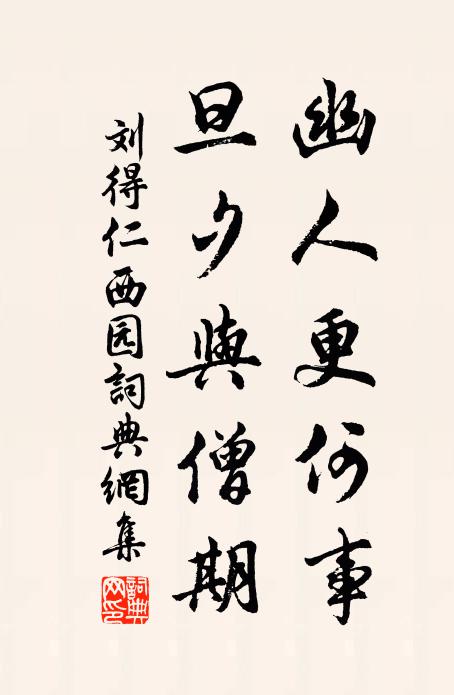 幽人更何事
旦夕與僧期
刘得仁西园詞典網集
詞典
网印